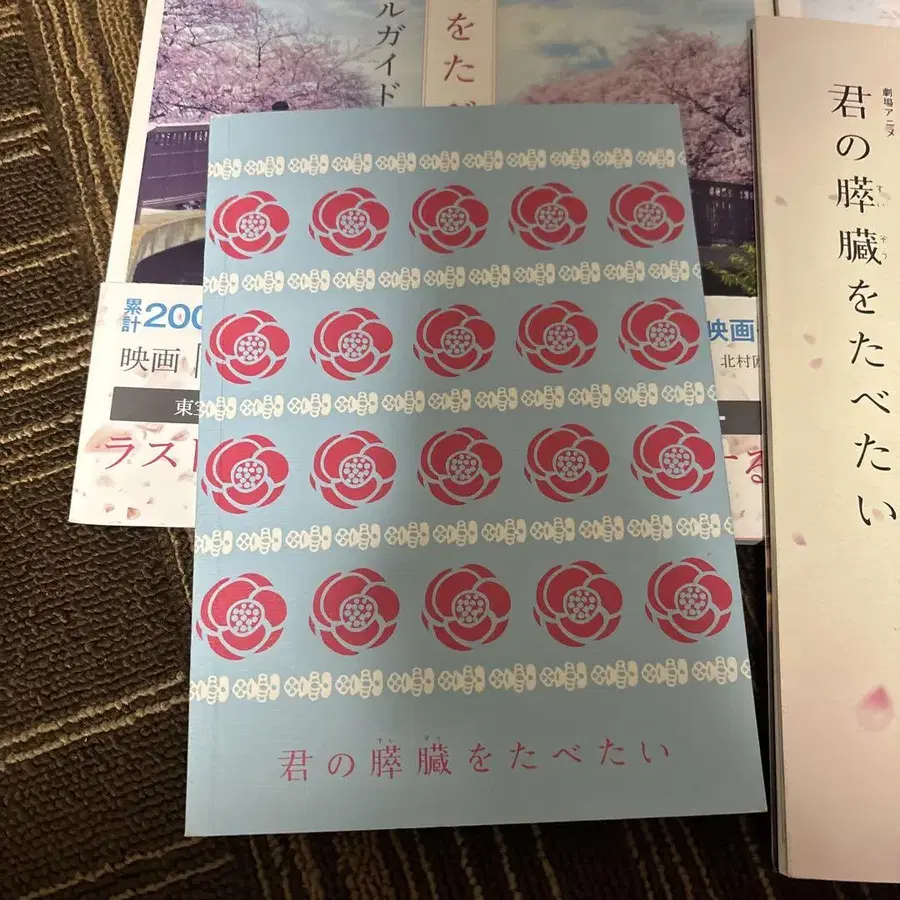 をたべ
ルガイド
累計200
映画
映画
北村
ラスト
る
劇場アニメ
君の膵臓をたべたい
すい ぞう
君の膵臓をたべたい
すい ぞう